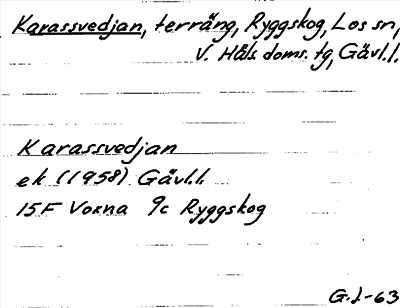 Karassvedjan, terräng, Ryggskog, Los sn,
V. Häls. doms. tg, Gävl.l.
Karassvedjan
ek (1958) Gävl.l.
15F Voxna 9c Ryggskog
G.J-63